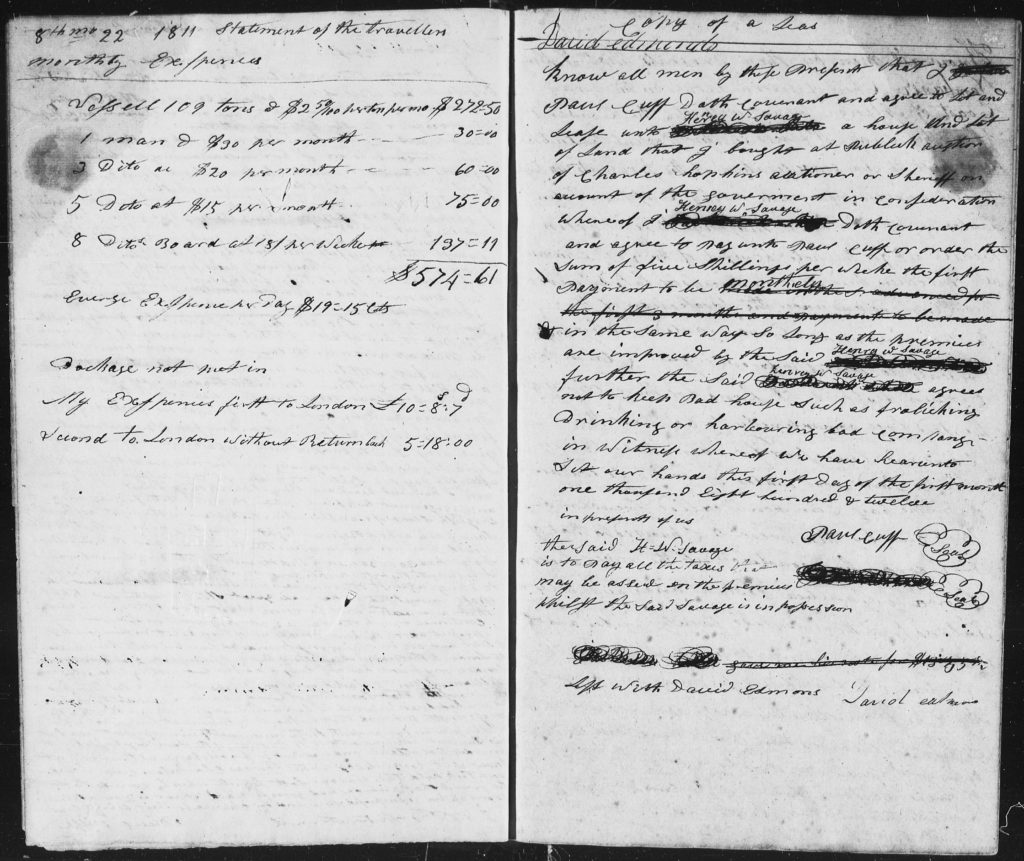 8th mo 22 1811 Statement of the Travellers
monthly Exspences
Vessell 109 tons @ $2 50/100 per ton per mo $272=50
1 man @ $30 per month 30=00
3 Dito at $20 per month 60=00
5 Doto at $15 per month 75=00
8 Dito Board at 18/ per Wicke 137=11
$574=61
Everge Exspence per Day $19=15 Cts
Dockage not put in
My Exspences first to London £10=8s=7d
Second to London Without Return back 5=18=00
Copy of a Leas
David Edmonds
Know all men by these Present that I
Paul Cuff Doth Covenant and agree to Let and
Lease unto Henry W. Savage a house and Lot
of Land that I bought at Publick auction
of Charles hopkins auctioner or Sheriff on
account of the government in Confederation
whereof I Henry W. Savage Doth Covenant
and agree to pay unto Paul Cuff or order the
Sum of five Shillings per Weke the first
Payment to be monthely
the first 3 month and payment to be made
& in the Same Way So Long as the premices
are improved by the Said Henry W Savage
further the Said Henrey W. Savage agrees
not to keep Bad house Such as frolicking
Drinking or harbouring bad Company-
in Witness whereof We have hearunto
Set our hands this first Day of the first month
one thousend Eight hundred & twelve
in presents of us
Paul Cuff Seal
the said H=W=Savage
is to Pay all the taxes that
may be assed on the premices Seal
whilst the Said Savage is in possession
gave me his note for
Left With David Edmons
David edmons